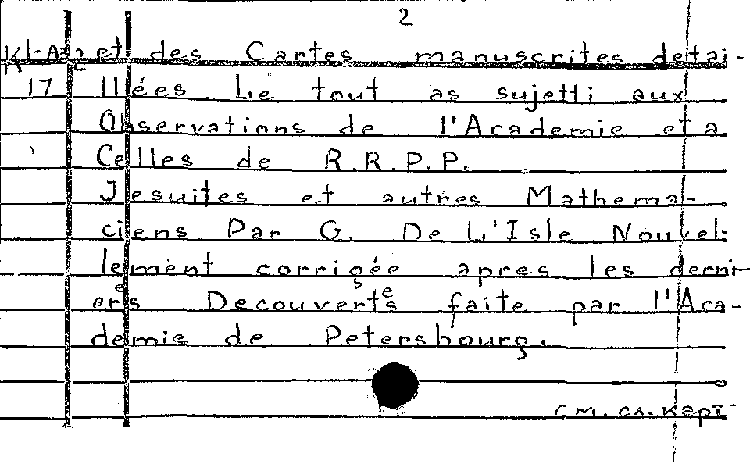 2
et des Cartes manuscrites detai-
17 llées Le tout as sujetti aux
Observations de l'Academie et a
Celles de R.R.P.P.
Jesuites et autres Mathema-
ciens Par G. De L'Isle Nouvel-
lement corrigée apres les derni-
ers Decouverte faite par l'Aca-
demie de Petersbourg.
См. сл. карт